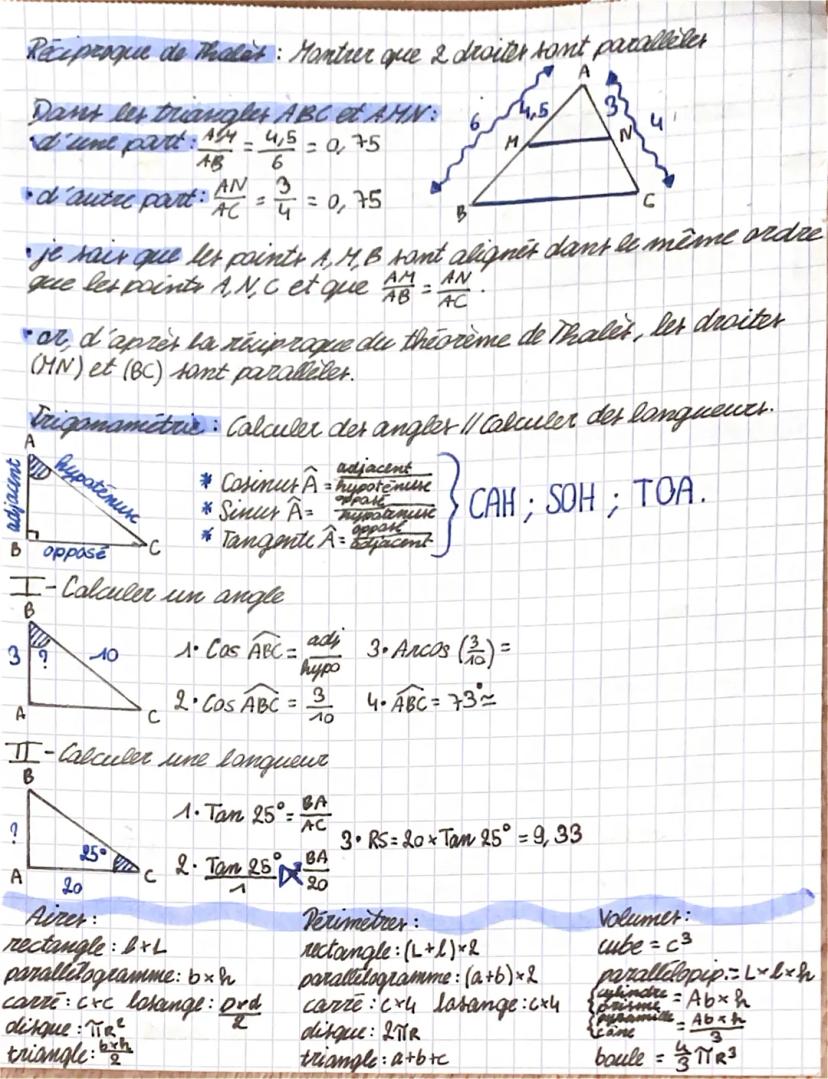 Réciproque de Thalès : Montrer que 2 droites sont parallèles
Dans les triangles ABC et AMN :
• d'une part : AM/AB = 4,5/6 = 0,75
• d'autre part : AN/AC = 3/4 = 0,75
A
6
4,5
3
4
M
N
B
C
• je sais que les points A, M, B sont alignés dans le même ordre
que les points A, N, C et que AM/AB = AN/AC.
• or, d'après la réciproque du théorème de Thalès, les droites
(MN) et (BC) sont parallèles.
Trigonométrie : Calculer des angles // Calculer des longueurs.
A
adjacent
hypoténuse
B
opposé
C
* Cosinus Â = adjacent/hypoténuse
* Sinus Â = opposé/hypoténuse
* Tangente Â = opposé/adjacent
CAH ; SOH ; TOA.
I - Calculer un angle
B
3
?
10
A
C
1• Cos ABC = adj/hypo
2• Cos ABC = 3/10
3• Arcos (3/10) =
4• ABC = 73°≃
II - Calculer une longueur
B
?
25°
A
20
C
1• Tan 25° = BA/AC
2• Tan 25°/1 BA/20
3• RS = 20 × Tan 25° = 9,33
Aires :
rectangle : l×L
parallélogramme : b×h
carré : c×c losange : D×d/2
disque : πR²
triangle : b×h/2
Périmètres :
rectangle : (L+l)×2
parallélogramme : (a+b)×2
carré : c×4 losange : c×4
disque : 2πR
triangle : a+b+c
Volumes :
cube = c³
parallélopip. = L×l×h
{cylindre prisme = Ab×h
{pyramide cône = Ab×h/3
boule = 4/3 πR³